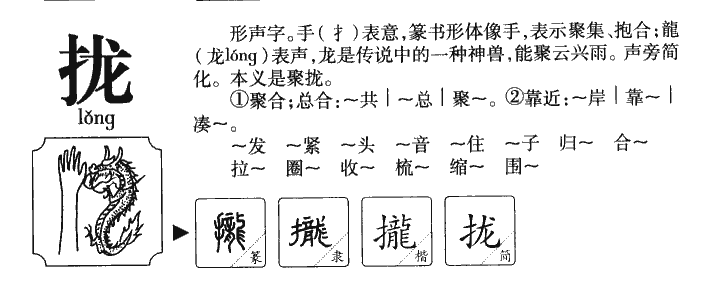 拢
lǒng
形声字。手(扌)表意,篆书形体像手,表示聚集、抱合;龍
(龙lóng)表声,龙是传说中的一种神兽,能聚云兴雨。声旁简
化。本义是聚拢。
①聚合;总合:～共|～总|聚～。②靠近:～岸|靠～|
凑～。
～发 ～紧 ～头 ～音 ～住 ～子 归～ 合～
拉～ 圈～ 收～ 梳～ 缩～ 围～
攏 篆 攏 隶 攏 楷 拢 简